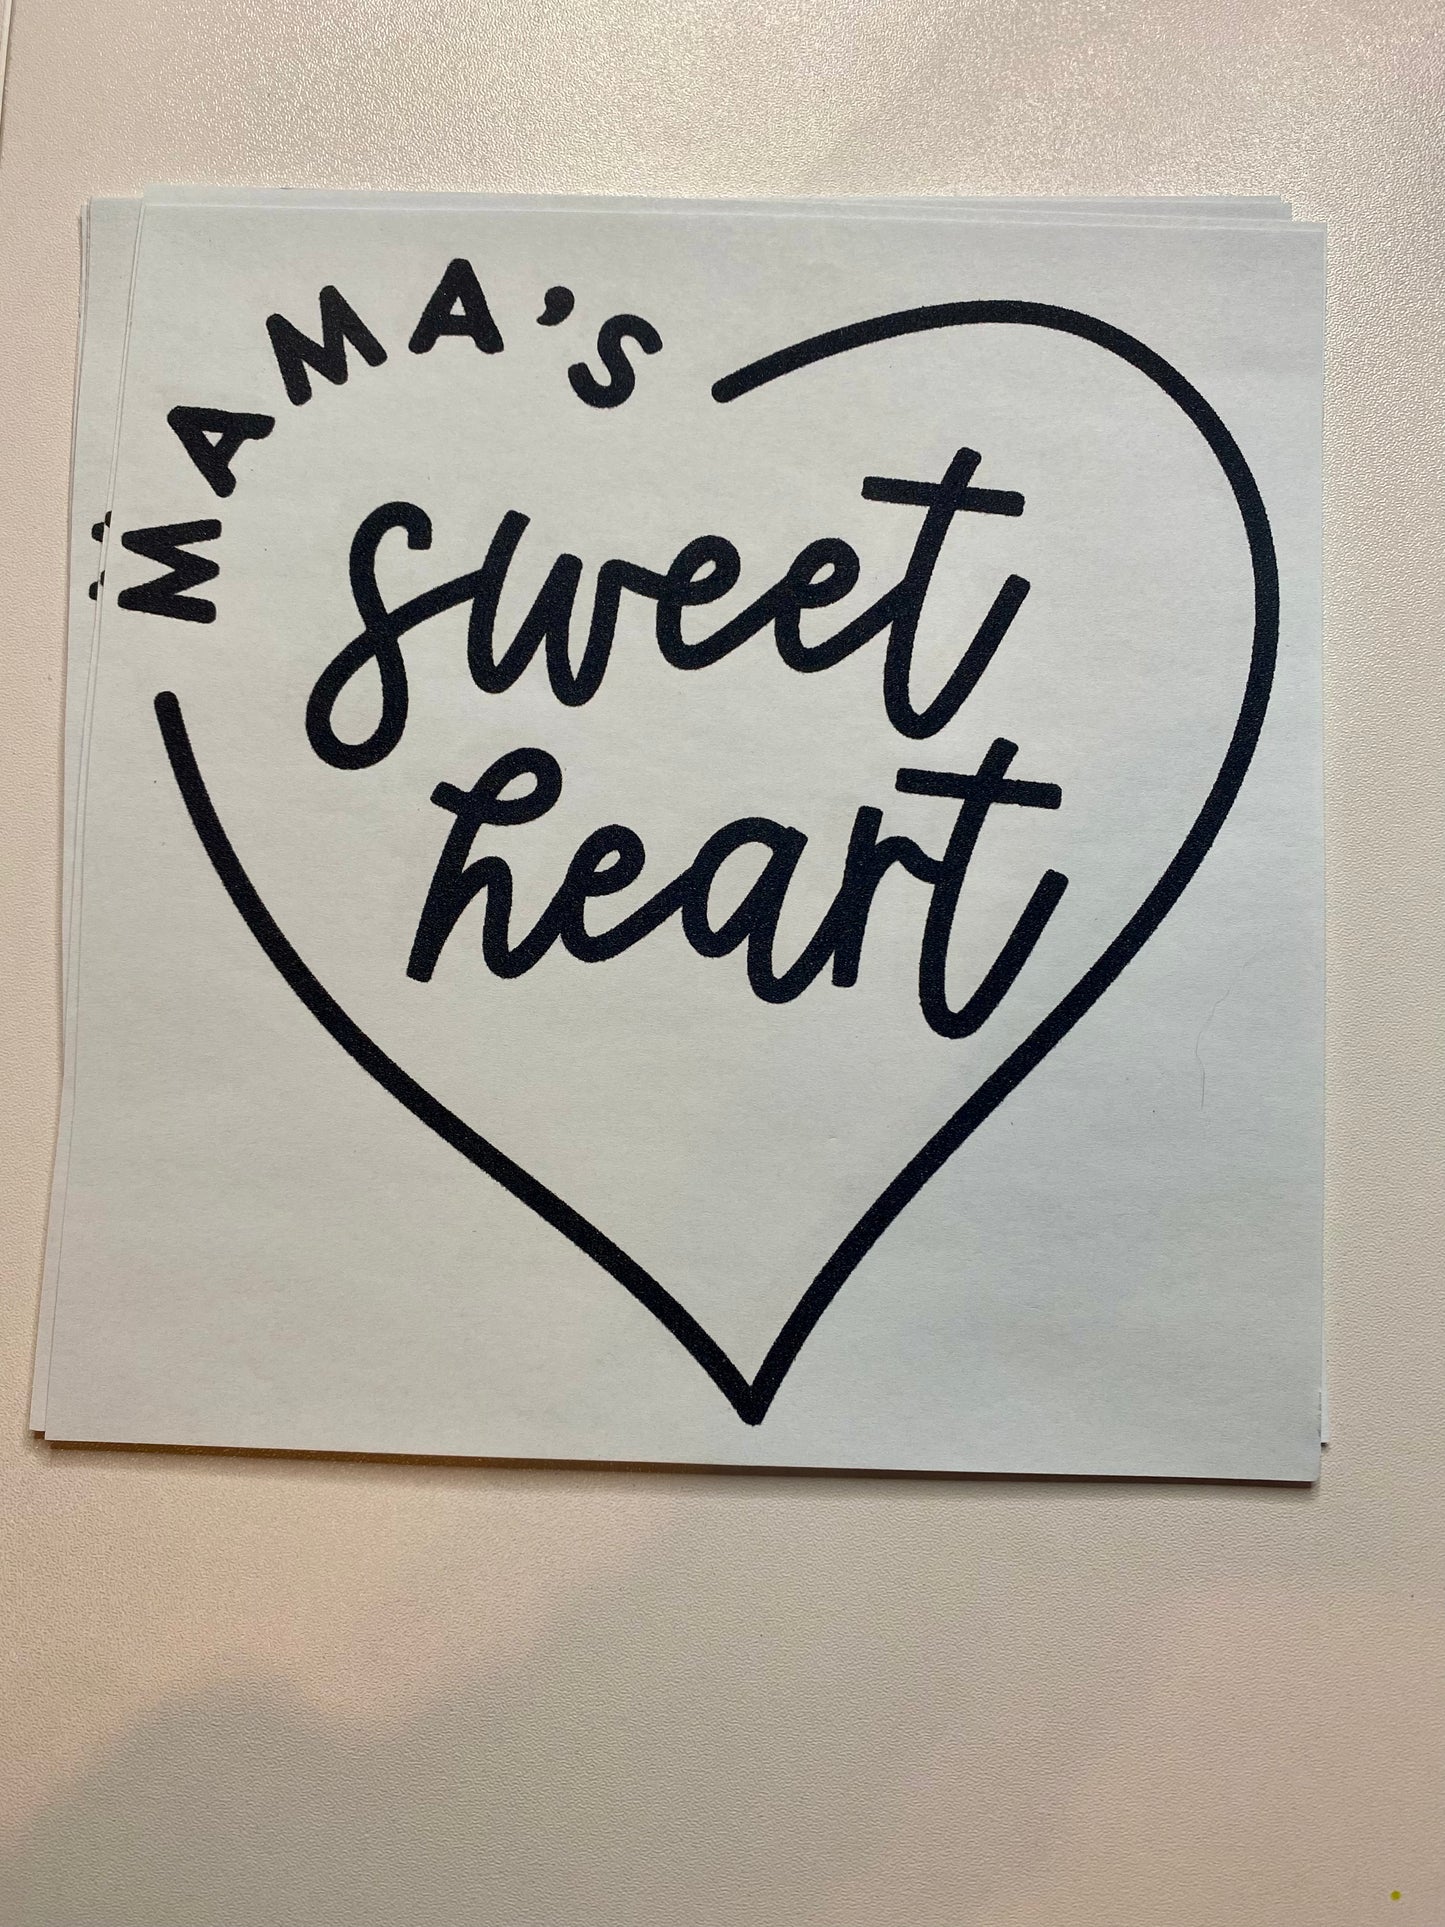 MAMA'S
sweet
heart